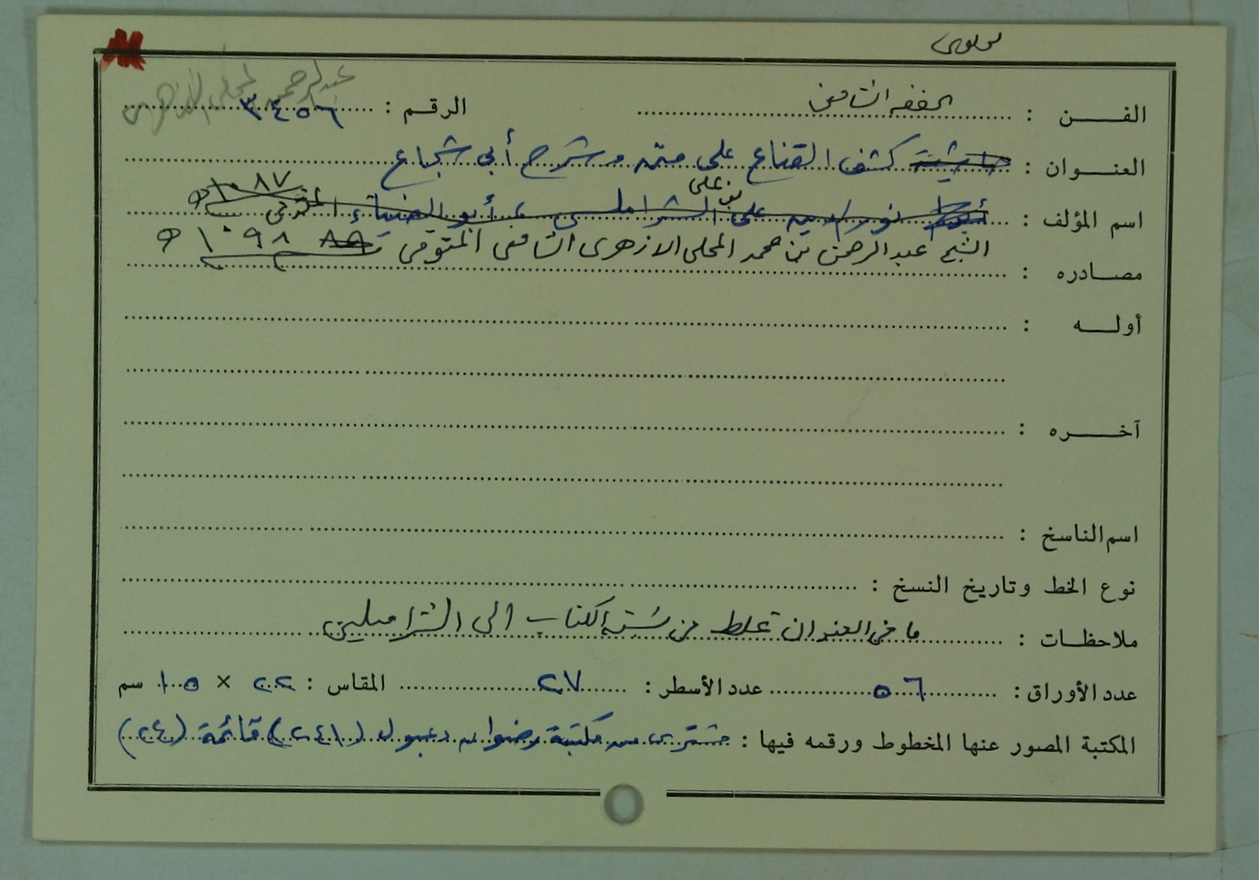 عبد الرحمن المحلي الأزهري
الفـن : الفقه الشافعي الرقم : ٣٤٥٦
العنـوان : حاشية كشف القناع على متن وشرح أبي شجاع
اسم المؤلف : نور الدين على بن على الشبراملسي، أبو الضياء المتوفى ١٠٨٧ هـ
الشيخ عبد الرحمن بن محمد المحلى الازهرى الشافعى المتوفى ١٠٩٨ هـ
مصـادره :
أولـه :
آخـره :
اسم الناسخ :
نوع الخط وتاريخ النسخ :
ملاحظـات : ما فى العنوان غلط من نسبة الكتاب الى الشبراملسي
عدد الأوراق : ٥٦ عدد الأسطر : ٢٧ المقاس : ٢٢ × ١٥ سم
المكتبة المصور عنها المخطوط ورقمه فيها : مشترى من مكتبة رضوان دعبول (٢٤١) قائمة (٢٤)